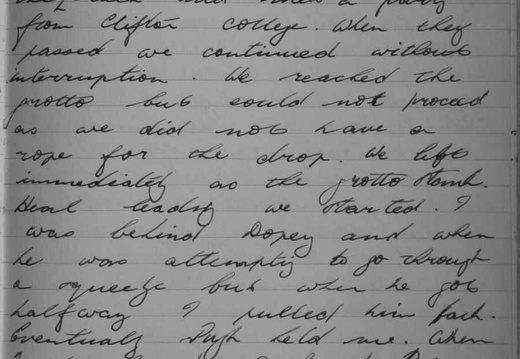 from Clifton College. When they
passed we continued without
interruption. We reached the
grotto but could not proceed
as we did not have a
rope for the drop. We left
immediately as the grotto stank.
Heal leading we started. I
was behind Dopey and when
he was attempting to go through
a squeeze but when he got
halfway I pulled him back.
Eventually Pugh held me. When